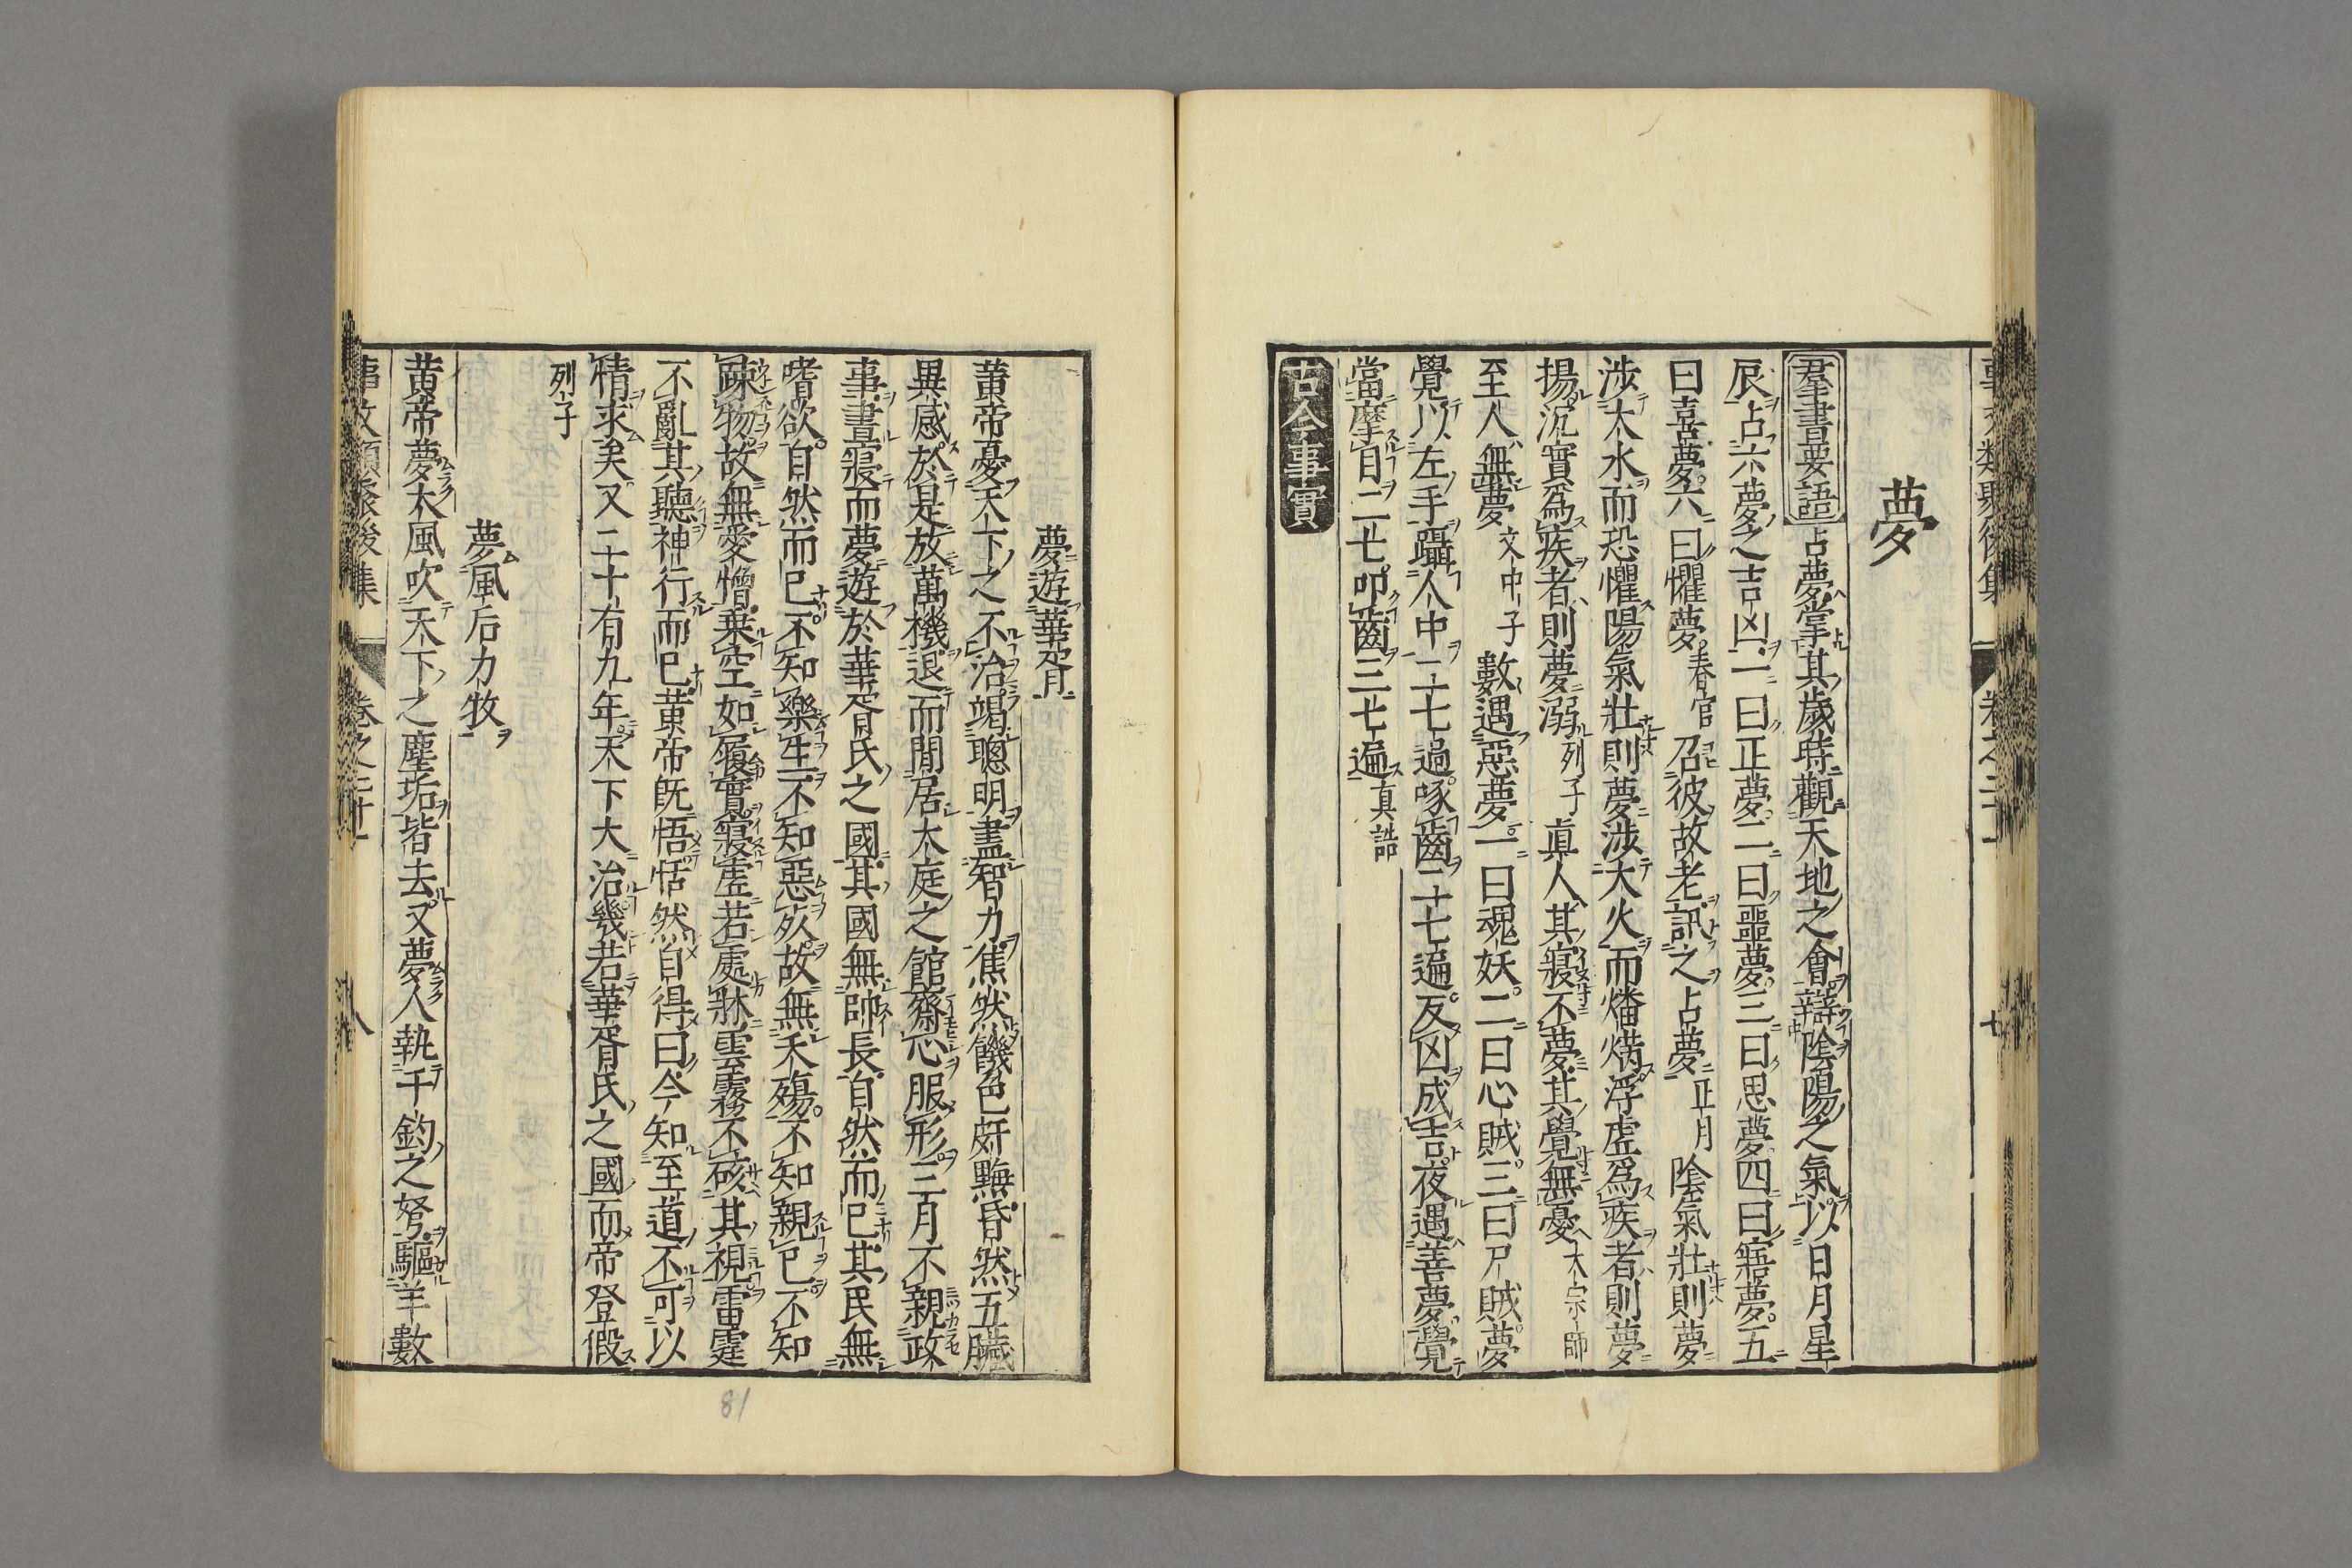 夢
羣書要語 占夢掌其歲時觀天地之會辯陰陽之氣以日月星
辰占六夢之吉凶一曰正夢二曰噩夢三曰思夢四曰寤夢五
曰喜夢六曰懼夢春官召彼故老訊之占夢正月陰氣壯則夢
涉大水而恐懼陽氣壯則夢涉大火而燔焫浮虛爲疾者則夢
揚沉實爲疾者則夢溺列子眞人其寢不夢其覺無憂大宗師
至人無夢文中子數遇惡夢一曰魂妖二曰心賊三曰尸賊夢
覺以左手躡人中二七過啄齒二十七遍反凶成吉夜遇善夢覺
當摩目二七叩齒三七遍真誥
古今事實
夢遊華胥
黃帝憂天下之不治竭聰明盡智力焦然饑色皯黣昏然五臟
異感於是放萬機退而閒居大庭之館齋心服形三月不親政
事晝寢而夢遊於華胥氏之國其國無帥長自然而已其民無
嗜欲自然而已不知樂生不知惡死故無夭殤不知親已不知
踈物故無愛憎乗空如履實寢虛若處牀雲霧不硋其視雷霆
不亂其聽神行而已黃帝旣悟恬然自得曰今知至道不可以
情求矣又二十有九年天下大治幾若華胥氏之國而帝登假
列子
夢風后力牧
黃帝夢大風吹天下之塵垢皆去又夢人執千鈞之弩驅羊數